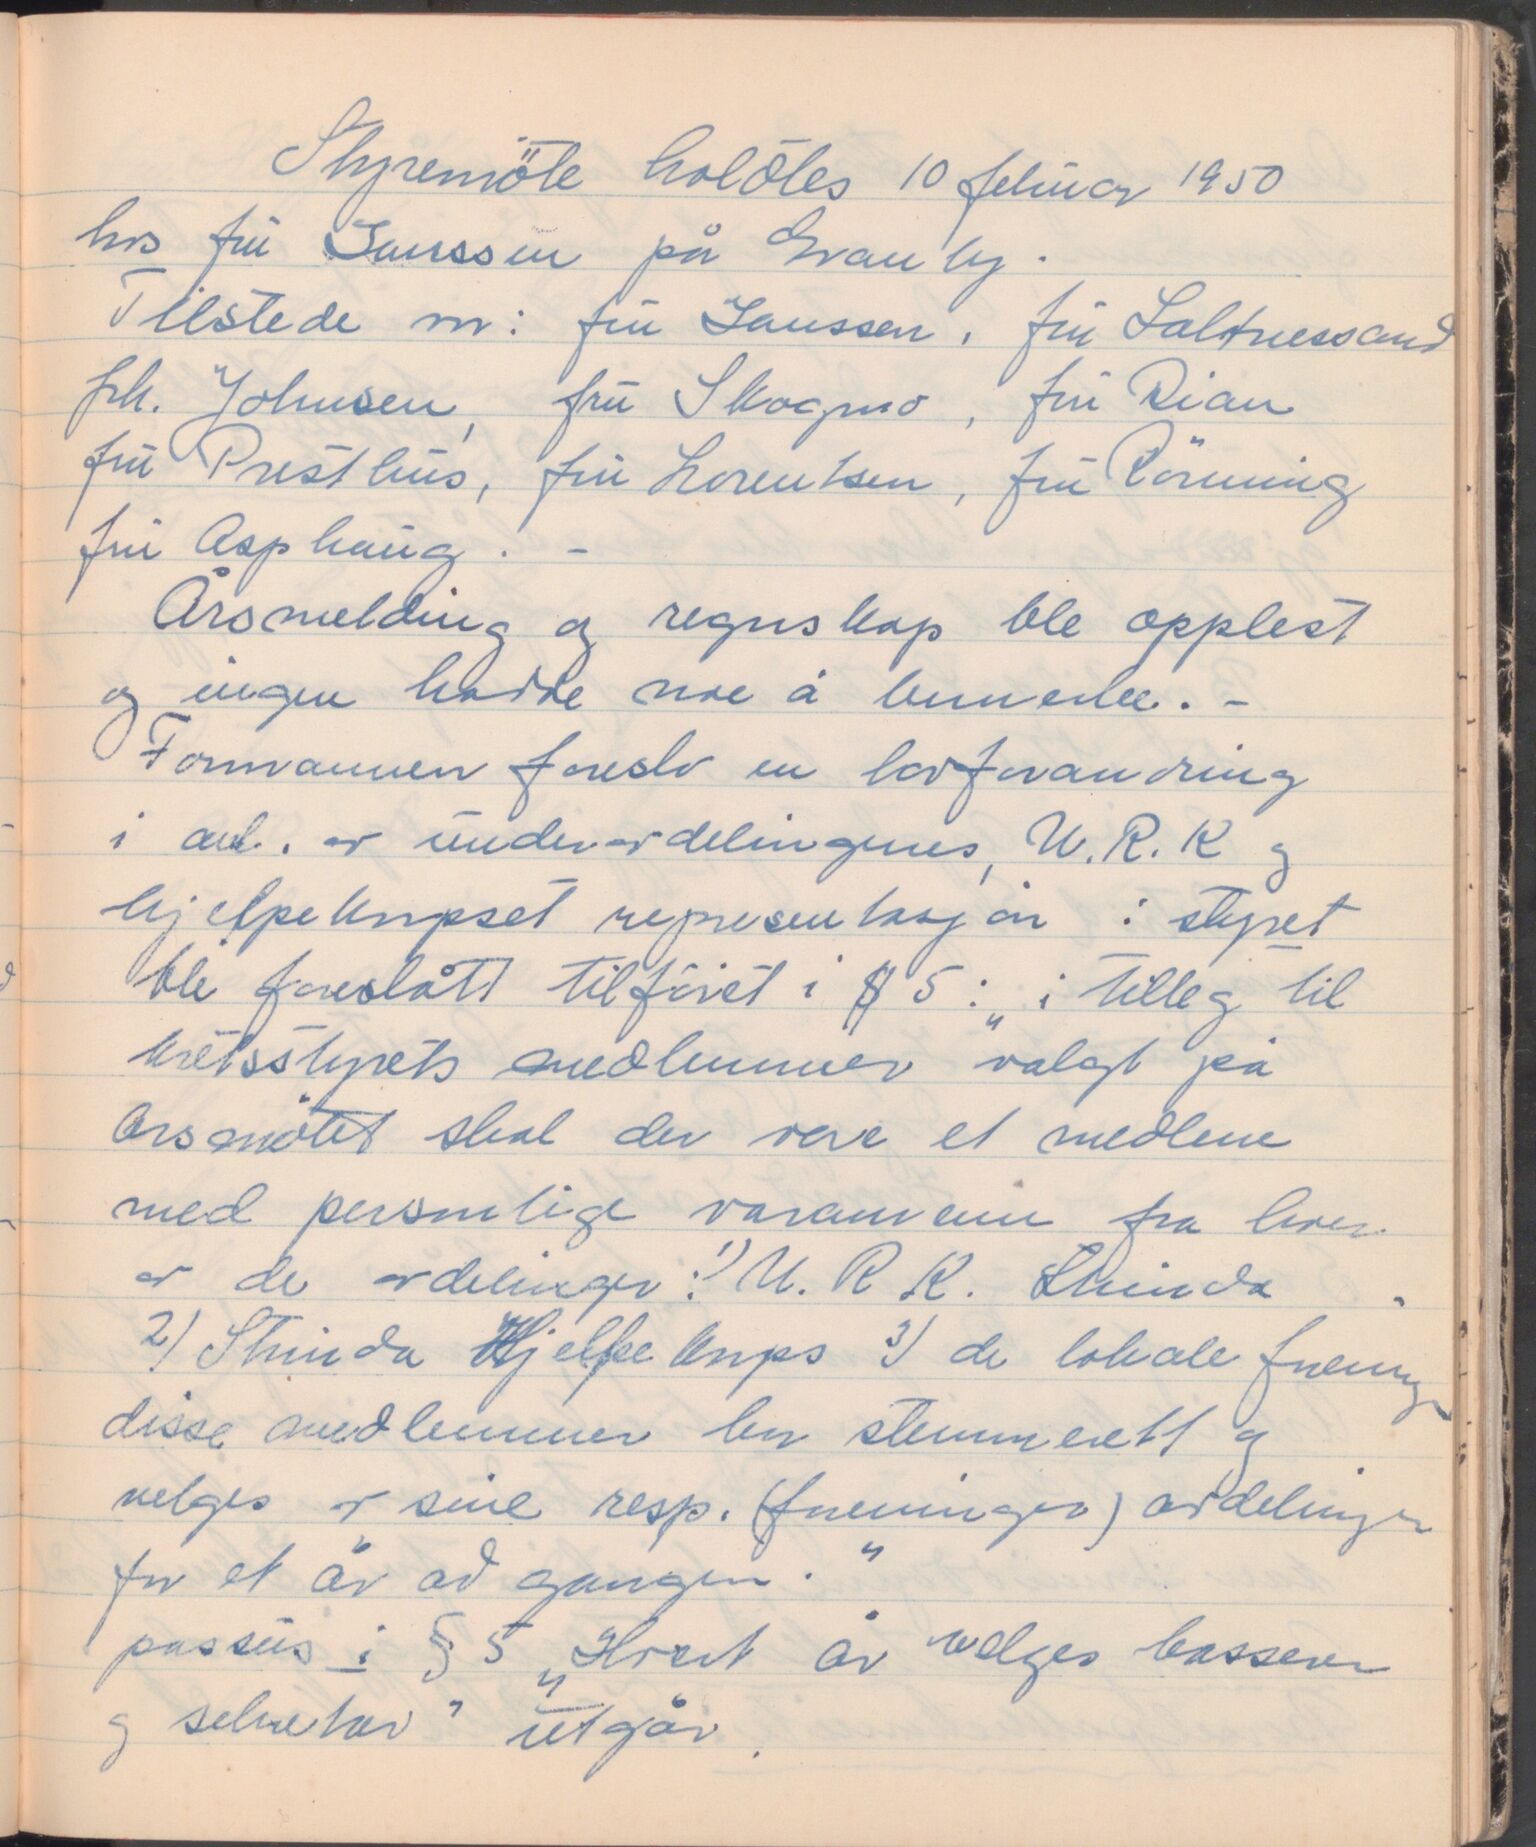 Styremöte holdtes 10 februar 1950
hos fru Janssen på Granby.
Tilstede var: fru Janssen, fru Saltnessand
frk. Johnsen, fru Skogmo, fru Rian
fru Presthus, fru Lorentsen, fru Rönning
fru Asphaug. -
Årsmelding og regnskap ble opplest
og ingen hadde noe å bemerke. -
Formannen foreslo en lovforandring
i anl. av underavdelingenes, U.R.K og
hjelpekorpset representasjon i styret
ble foreslått tilföiet i § 5: „i tilleg til
kretsstyrets medlemmer valgt på
årsmötet skal der være et medlem
med personlige varamenn fra hver
av de avdelinger: 1) U. R. K. Strinda
2) Strinda Hjelpekorps 3) de lokale foreninger
disse medlemmer har stemmerett og
velges av sine resp. (foreninger) avdelinger
for et år ad gangen."
passus i § 5 „Hvert år velges kasserer
og sekretær" utgår.